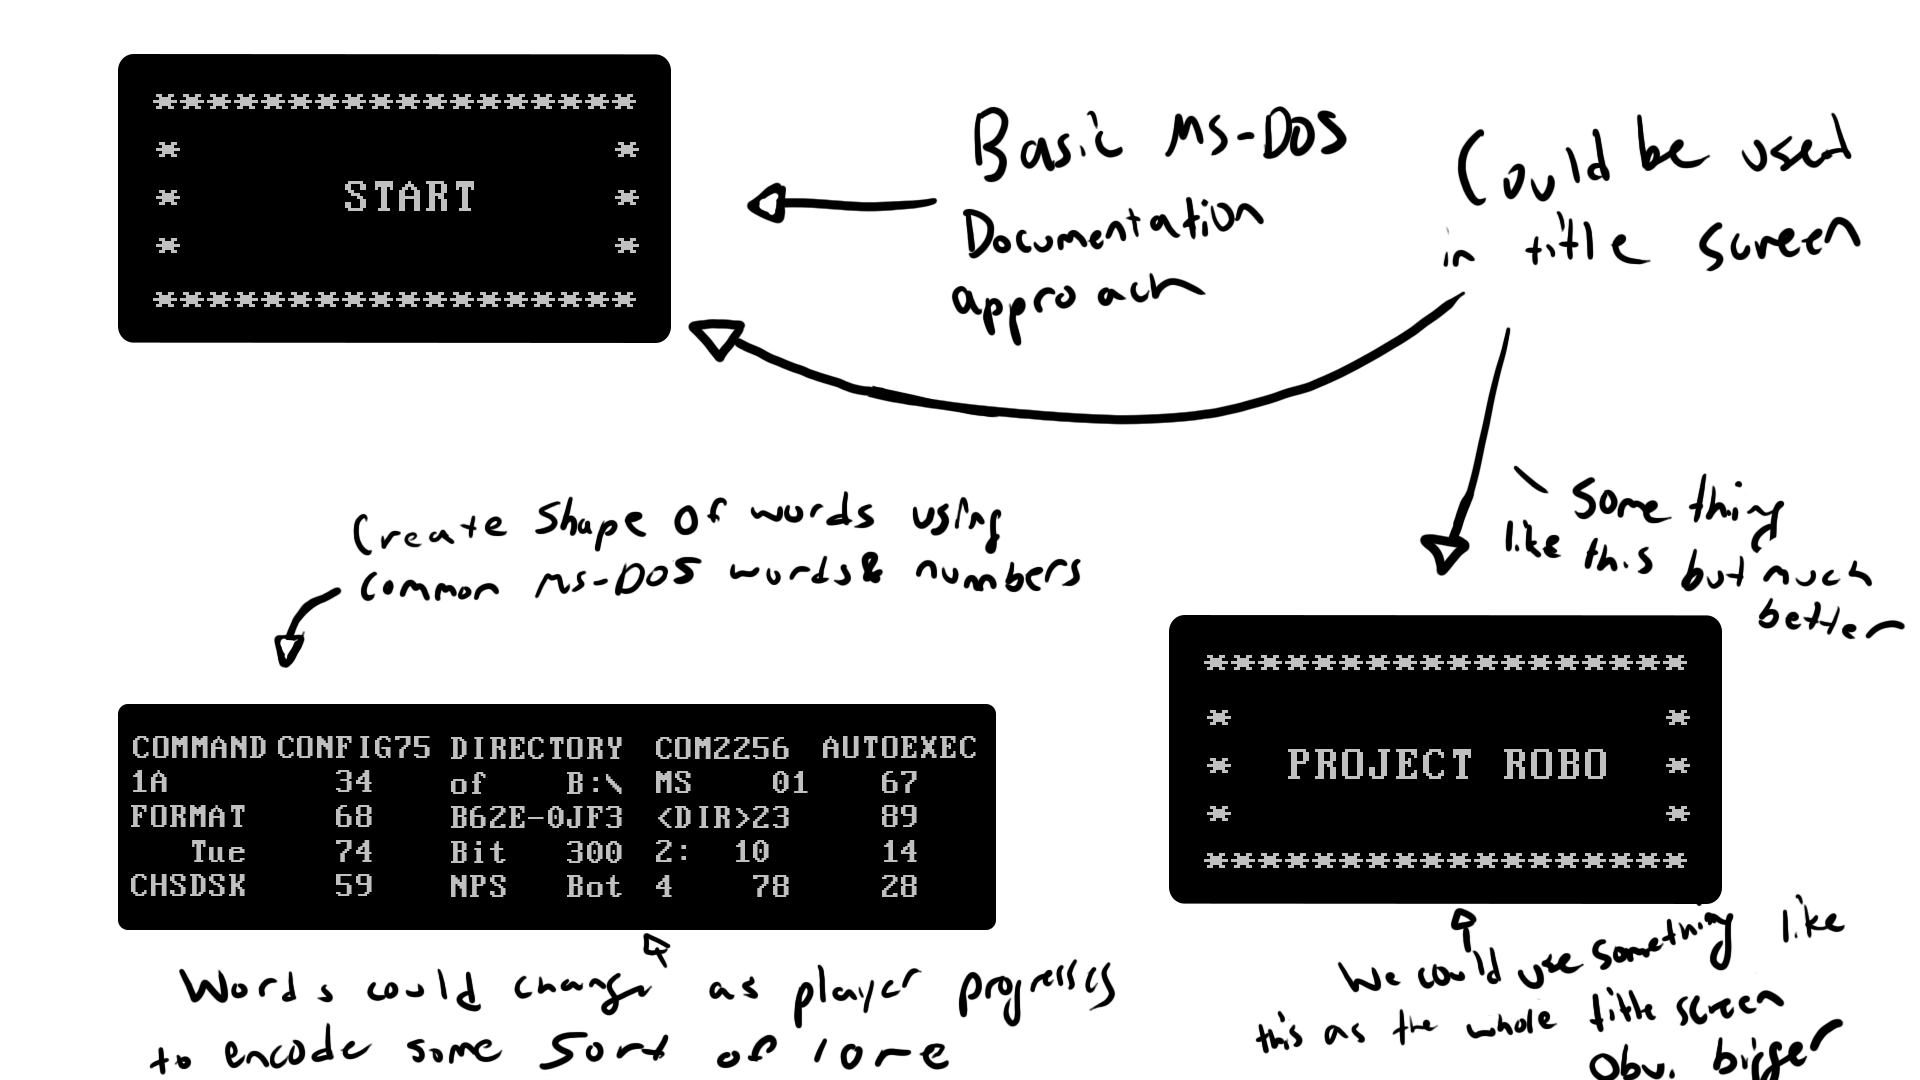 ******************
* *
* START *
* *
******************
Basic MS-DOS
Documentation
approach
Could be used
in title screen
Create Shape of words using
common MS-DOS words & numbers
Something
like this but much
better
COMMAND CONFIG75 DIRECTORY COM2256 AUTOEXEC
1A 34 of B:\ MS 01 67
FORMAT 68 B62E-0JF3 <DIR>23 89
Tue 74 Bit 300 2: 10 14
CHSDSK 59 NPS Bot 4 78 28
******************
* *
* PROJECT ROBO *
* *
******************
Words could change as player progresses
to encode some sort of lore
We could use something like
this as the whole title screen
Obv. bigger